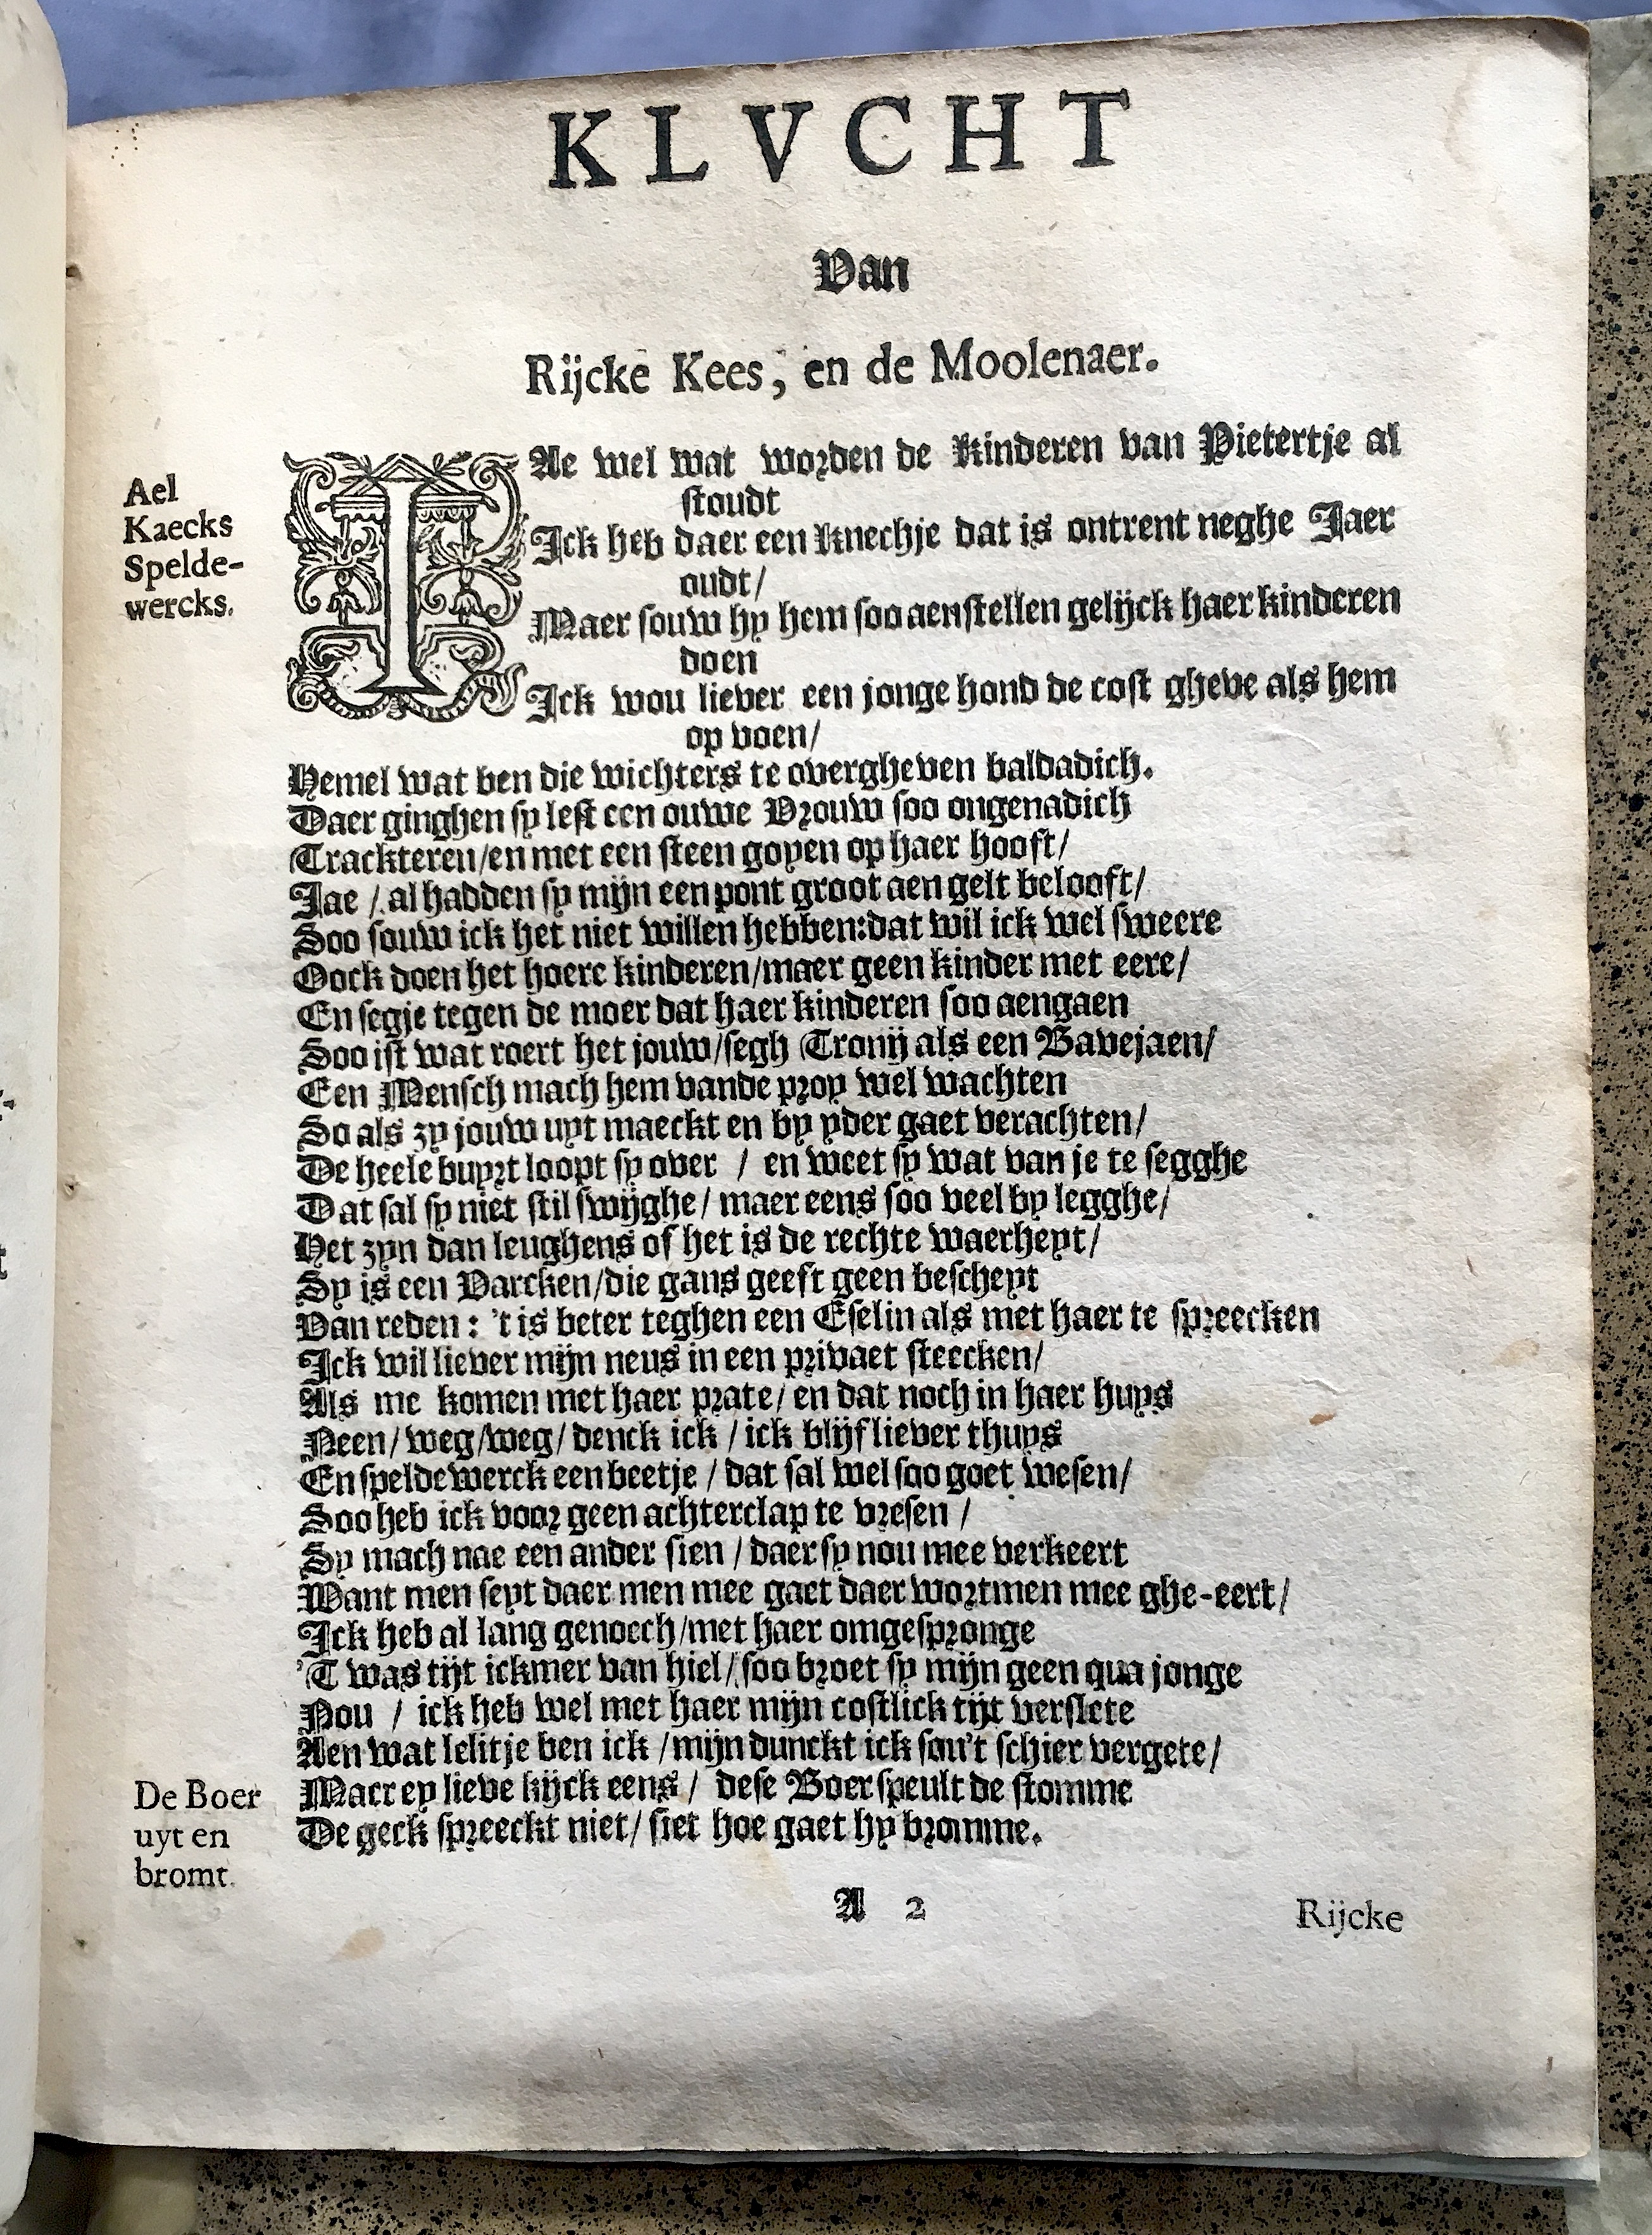 KLVCHT
Van
Rijcke Kees, en de Moolenaer.
Ael
Kaecks
Spelde-
wercks.
IAe wel wat worden de Kinderen van Pietertje al
stoudt
Ick heb daer een Knechje dat is ontrent neghe Jaer
oudt/
Maer souw hy hem soo aenstellen gelijck haer kinderen
doen
Ick wou liever een jonge hond de cost gheve als hem
op voen/
Hemel wat ben die wichters te overgheven baldadich.
Daer ginghen sy lest een ouwe Vrouw soo ongenadich
Trackteren/en met een steen goyen op haer hooft/
Jae / al hadden sy mijn een pont groot aen gelt belooft/
Soo souw ick het niet willen hebben:dat wil ick wel sweere
Oock doen het hoere kinderen/maer geen kinder met eere/
En segje tegen de moer dat haer kinderen soo aengaen
Soo ist wat roert het jouw/segh Tronij als een Bavejaen/
Een Mensch mach hem vande proy wel wachten
So als zy jouw uyt maeckt en by yder gaet verachten/
De heele buyrt loopt sy over / en weet sy wat van je te segghe
Dat sal sy niet stil swijghe/ maer eens soo veel by legghe/
Het zyn dan leughens of het is de rechte waerheyt/
Sy is een Varcken/die gans geeft geen bescheyt
Van reden: 't is beter teghen een Eselin als met haer te spreecken
Ick wil liever mijn neus in een privaet steecken/
Als me komen met haer prate/ en dat noch in haer huys
Neen/ weg/weg/ denck ick / ick blijf liever thuys
En speldewerck een beetje / dat sal wel soo goet wesen/
Soo heb ick voor geen achterclap te vresen /
Sy mach nae een ander sien / daer sy nou mee verkeert
Want men seyt daer men mee gaet daer wortmen mee ghe-eert/
Ick heb al lang genoech/met haer omgespronge
'T was tijt ickmer van hiel/ soo broet sy mijn geen qua jonge
Nou / ick heb wel met haer mijn costlick tijt verslete
Aen wat lelitje ben ick /mijn dunckt ick sou't schier vergete/
De Boer
uyt en
bromt.
Maer ey lieve kijck eens / dese Boer speult de stomme
De geck spreeckt niet/ siet hoe gaet hy bromme.
A 2
Rijcke